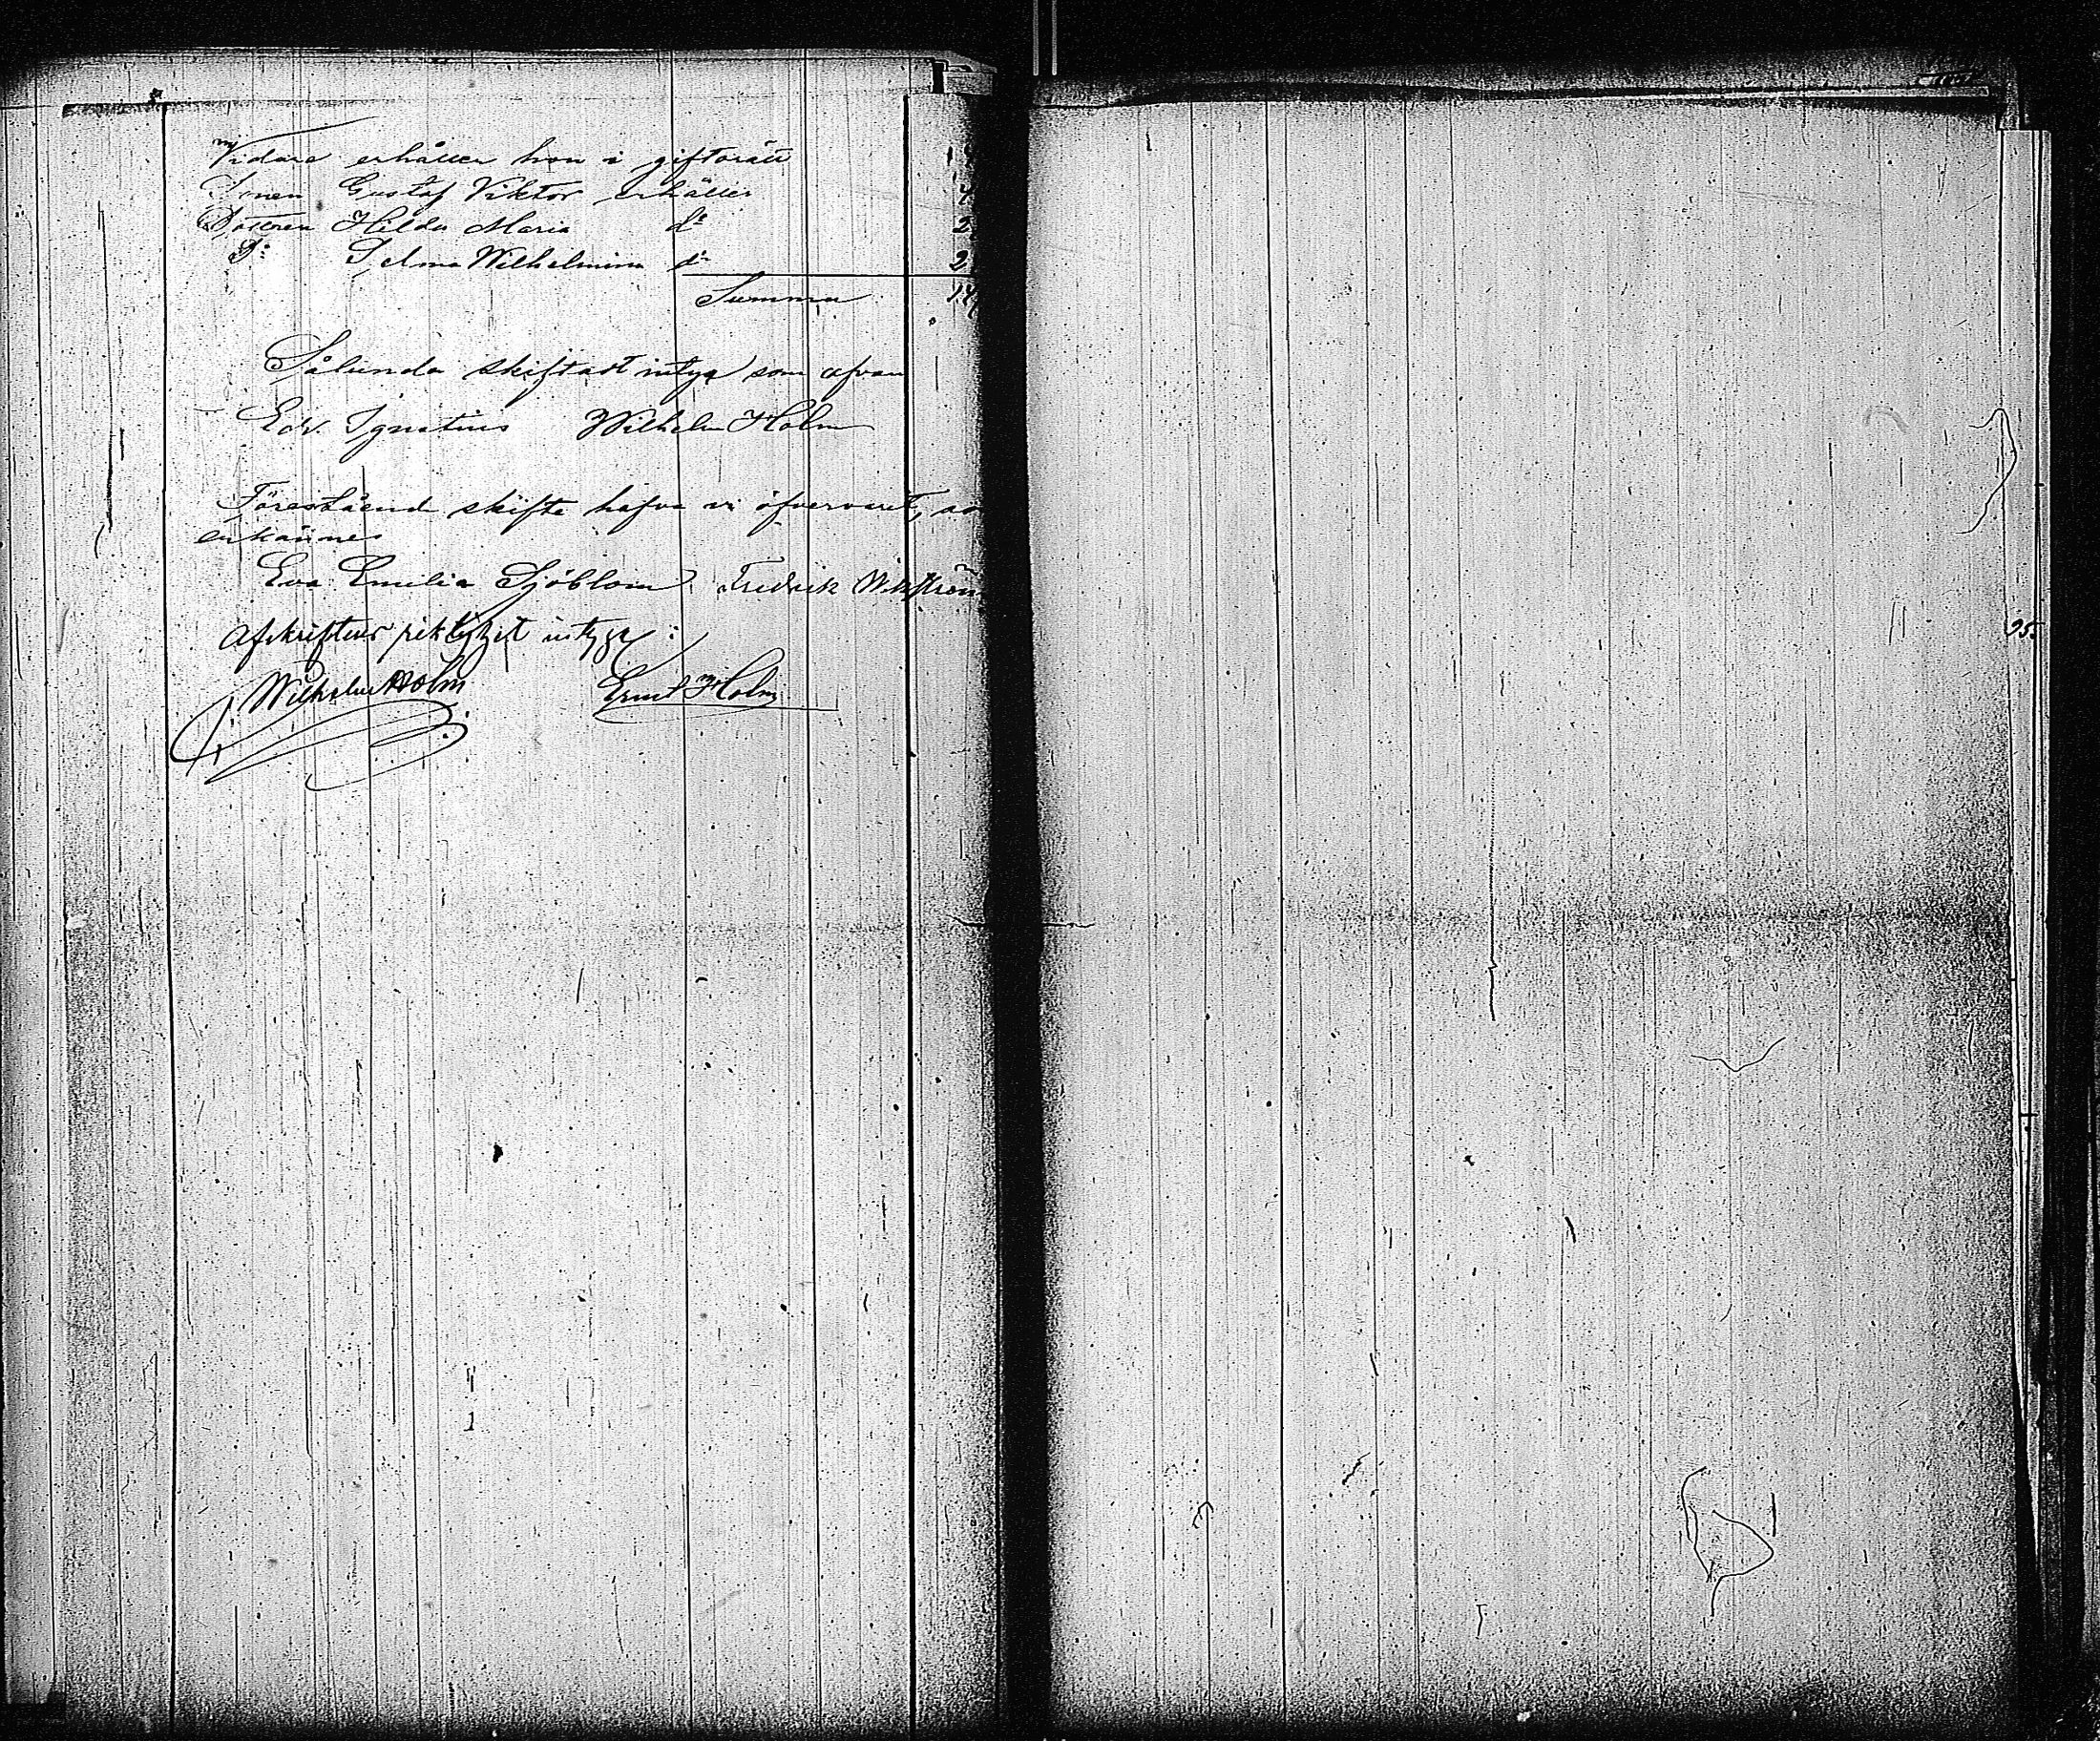 Vidare erhåller hon i giftorätt
Sonen Gustaf Viktor erhåller
Dotteren Hilda Maria do
Do Selma Wilhelmina do 2
Summa 14
Sålunda skiftadt intyga som ofvan
Edv. Ignatius Wilhelm Holm
Föreståend skifte hafva vi öfvervarit, so
erkännes
Eva Emilia Sjöblom. Fredrik Wikström
Afskriftens riktighet intyga:
Wilhelm Holm Ernst Holm
95.